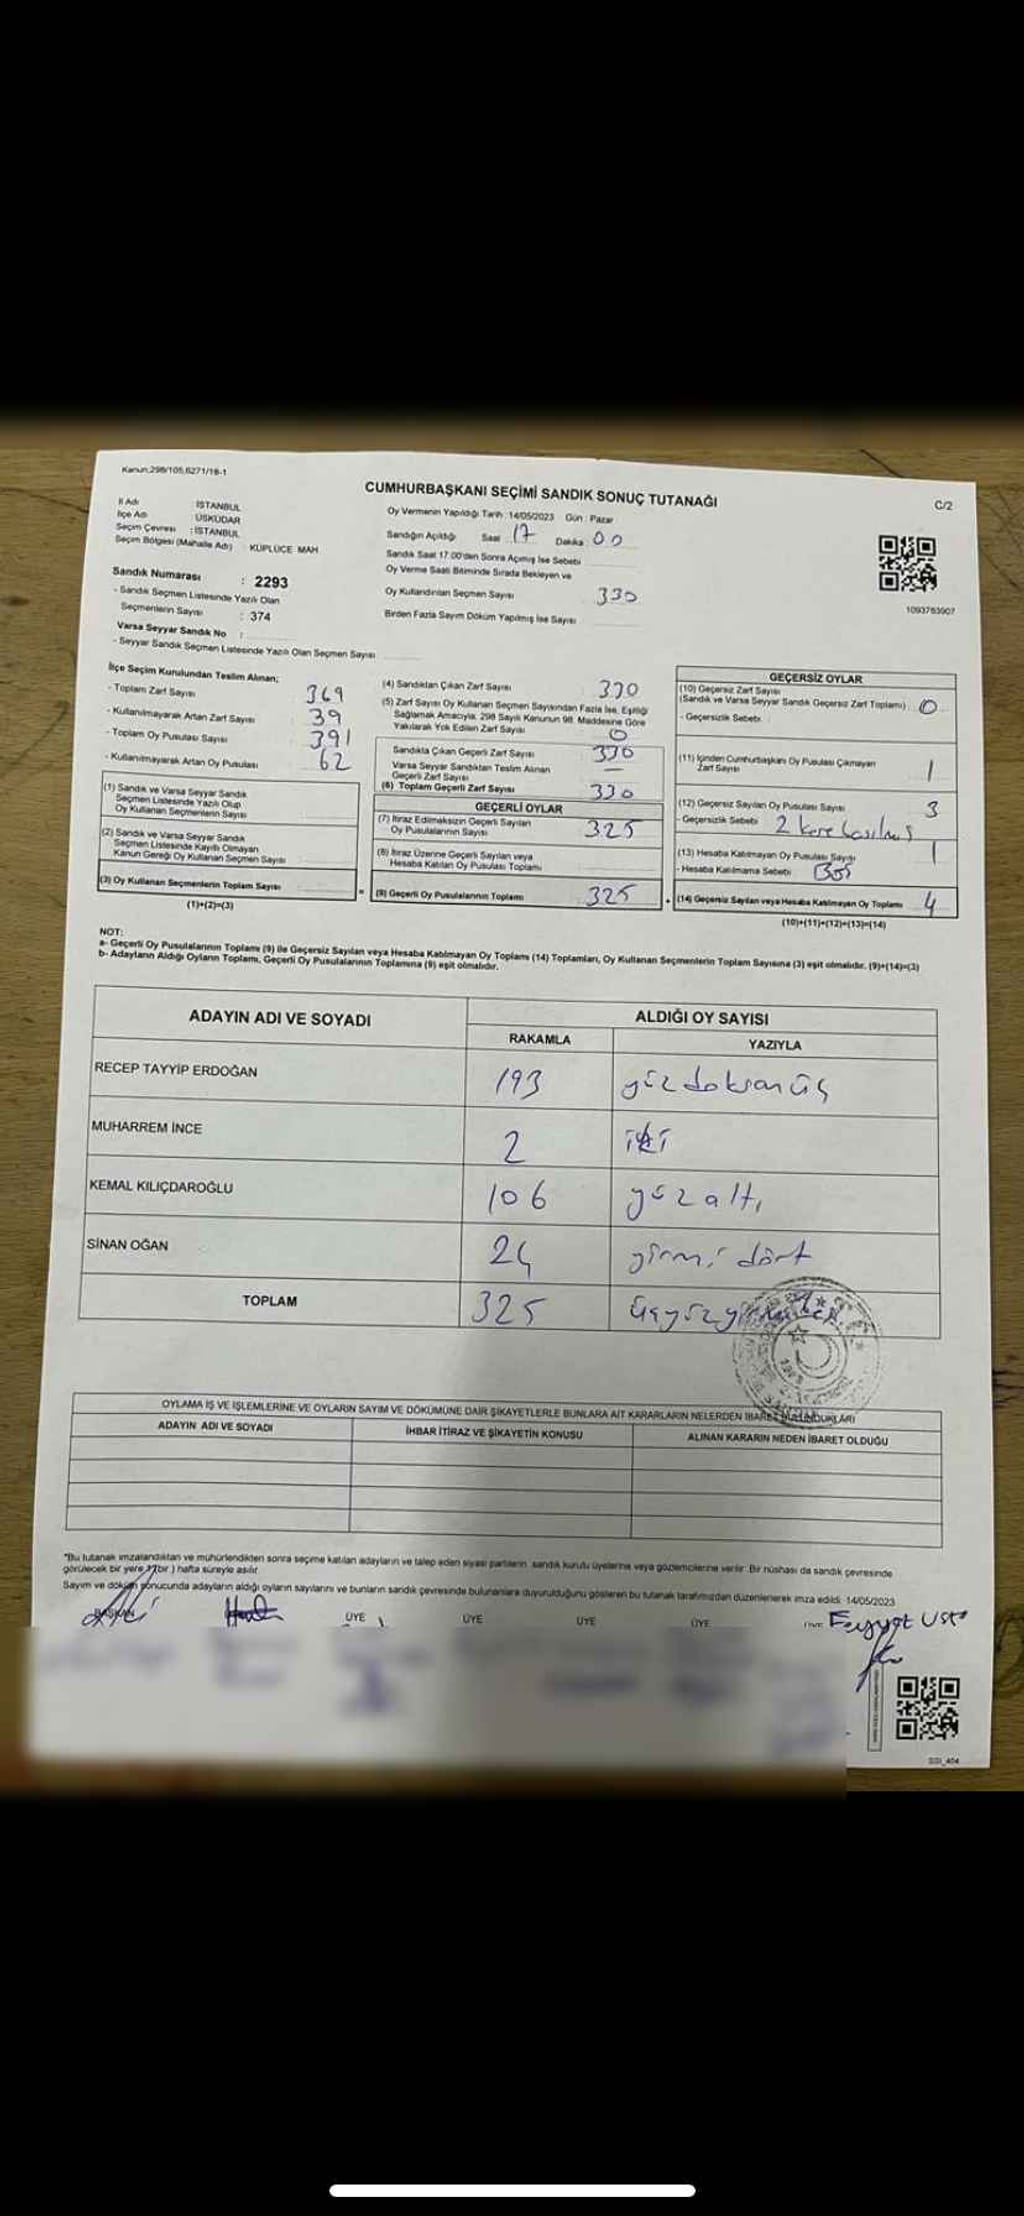 Kanun:298/105,6271/18-1
CUMHURBAŞKANI SEÇİMİ SANDIK SONUÇ TUTANAĞI
C/2
İl Adı : İSTANBUL
İlçe Adı : ÜSKÜDAR
Seçim Çevresi : İSTANBUL
Seçim Bölgesi (Mahalle Adı) : KÜPLÜCE MAH
Sandık Numarası : 2293
- Sandık Seçmen Listesinde Yazılı Olan
Seçmenlerin Sayısı : 374
Varsa Seyyar Sandık No :
- Seyyar Sandık Seçmen Listesinde Yazılı Olan Seçmen Sayısı
Oy Vermenin Yapıldığı Tarih :14/05/2023 Gün : Pazar
Sandığın Açıldığı Saat 17 Dakika 00
Sandık Saat 17:00'den Sonra Açılmış İse Sebebi
Oy Verme Saati Bitiminde Sırada Bekleyen ve
Oy Kullandırılan Seçmen Sayısı 330
Birden Fazla Sayım Döküm Yapılmış İse Sayısı
1093763907
İlçe Seçim Kurulundan Teslim Alınan;
- Toplam Zarf Sayısı 369
- Kullanılmayarak Artan Zarf Sayısı 39
- Toplam Oy Pusulası Sayısı 391
- Kullanılmayarak Artan Oy Pusulası 62
(1) Sandık ve Varsa Seyyar Sandık
Seçmen Listesinde Yazılı Olup
Oy Kullanan Seçmenlerin Sayısı
(2) Sandık ve Varsa Seyyar Sandık
Seçmen Listesinde Kayıtlı Olmayan
Kanun Gereği Oy Kullanan Seçmen Sayısı
(3) Oy Kullanan Seçmenlerin Toplam Sayısı
(1)+(2)=(3)
(4) Sandıktan Çıkan Zarf Sayısı 330
(5) Zarf Sayısı Oy Kullanan Seçmen Sayısından Fazla İse, Eşitliği
Sağlamak Amacıyla, 298 Sayılı Kanunun 98. Maddesine Göre
Yakılarak Yok Edilen Zarf Sayısı 0
Sandıkta Çıkan Geçerli Zarf Sayısı 330
Varsa Seyyar Sandıktan Teslim Alınan
Geçerli Zarf Sayısı —
(6) Toplam Geçerli Zarf Sayısı 330
GEÇERLİ OYLAR
(7) İtiraz Edilmeksizin Geçerli Sayılan
Oy Pusulalarının Sayısı 325
(8) İtiraz Üzerine Geçerli Sayılan veya
Hesaba Katılan Oy Pusulası Toplamı
= (9) Geçerli Oy Pusulalarının Toplamı 325
GEÇERSİZ OYLAR
(10) Geçersiz Zarf Sayısı
(Sandık ve Varsa Seyyar Sandık Geçersiz Zarf Toplamı) 0
- Geçersizlik Sebebi
(11) İçinden Cumhurbaşkanı Oy Pusulası Çıkmayan
Zarf Sayısı 1
(12) Geçersiz Sayılan Oy Pusulası Sayısı 3
- Geçersizlik Sebebi 2 kere basılmış
(13) Hesaba Katılmayan Oy Pusulası Sayısı 1
- Hesaba Katılmama Sebebi Boş
+ (14) Geçersiz Sayılan veya Hesaba Katılmayan Oy Toplamı 4
(10)+(11)+(12)+(13)=(14)
NOT:
a- Geçerli Oy Pusulalarının Toplamı (9) ile Geçersiz Sayılan veya Hesaba Katılmayan Oy Toplamı (14) Toplamları, Oy Kullanan Seçmenlerin Toplam Sayısına (3) eşit olmalıdır. (9)+(14)=(3)
b- Adayların Aldığı Oyların Toplamı, Geçerli Oy Pusulalarının Toplamına (9) eşit olmalıdır.
ADAYIN ADI VE SOYADI
ALDIĞI OY SAYISI
RAKAMLA YAZIYLA
RECEP TAYYİP ERDOĞAN 193 yüz doksan üç
MUHARREM İNCE 2 iki
KEMAL KILIÇDAROĞLU 106 yüz altı
SİNAN OĞAN 24 yirmi dört
TOPLAM 325
OYLAMA İŞ VE İŞLEMLERİNE VE OYLARIN SAYIM VE DÖKÜMÜNE DAİR ŞİKAYETLERLE BUNLARA AİT KARARLARIN NELERDEN İBARET BULUNDUKLARI
ADAYIN ADI VE SOYADI İHBAR İTİRAZ VE ŞİKAYETİN KONUSU ALINAN KARARIN NEDEN İBARET OLDUĞU
"Bu tutanak imzalandıktan ve mühürlendikten sonra seçime katılan adayların ve talep eden siyasi partilerin sandık kurulu üyelerine veya gözlemcilerine verilir. Bir nüshası da sandık çevresinde
görülecek bir yere 1 (bir ) hafta süreyle asılır
Sayım ve döküm sonucunda adayların aldığı oyların sayılarını ve bunların sandık çevresinde bulunanlara duyurulduğunu gösteren bu tutanak tarafımızdan düzenlenerek imza edildi. 14/05/2023
BAŞKAN ÜYE ÜYE ÜYE ÜYE ÜYE